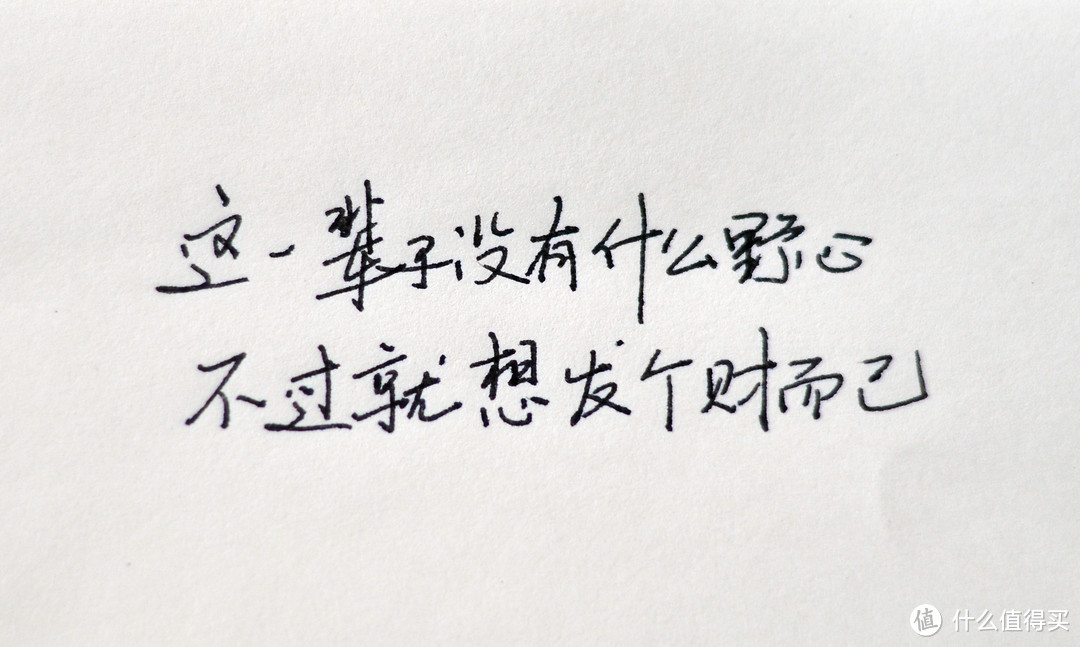 这一辈子没有什么野心
不过就想发个财而已
值 什么值得买